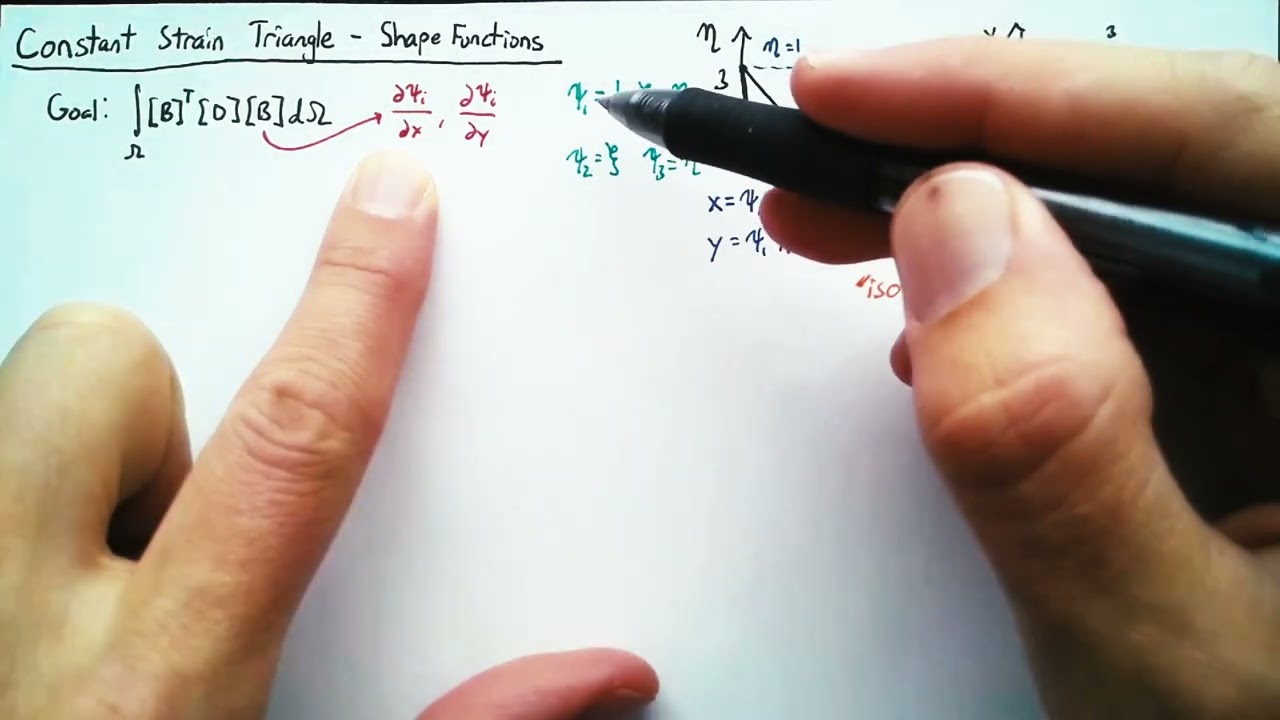 Constant Strain Triangle - Shape Functions
Goal: ∫Ω [B]ᵀ[D][B]dΩ → ∂Ψi/∂x, ∂Ψi/∂y
Ψ1 =
Ψ2 = ξ Ψ3 = η
η η=1
3
3
x = Ψ1
y = Ψ1
"iso